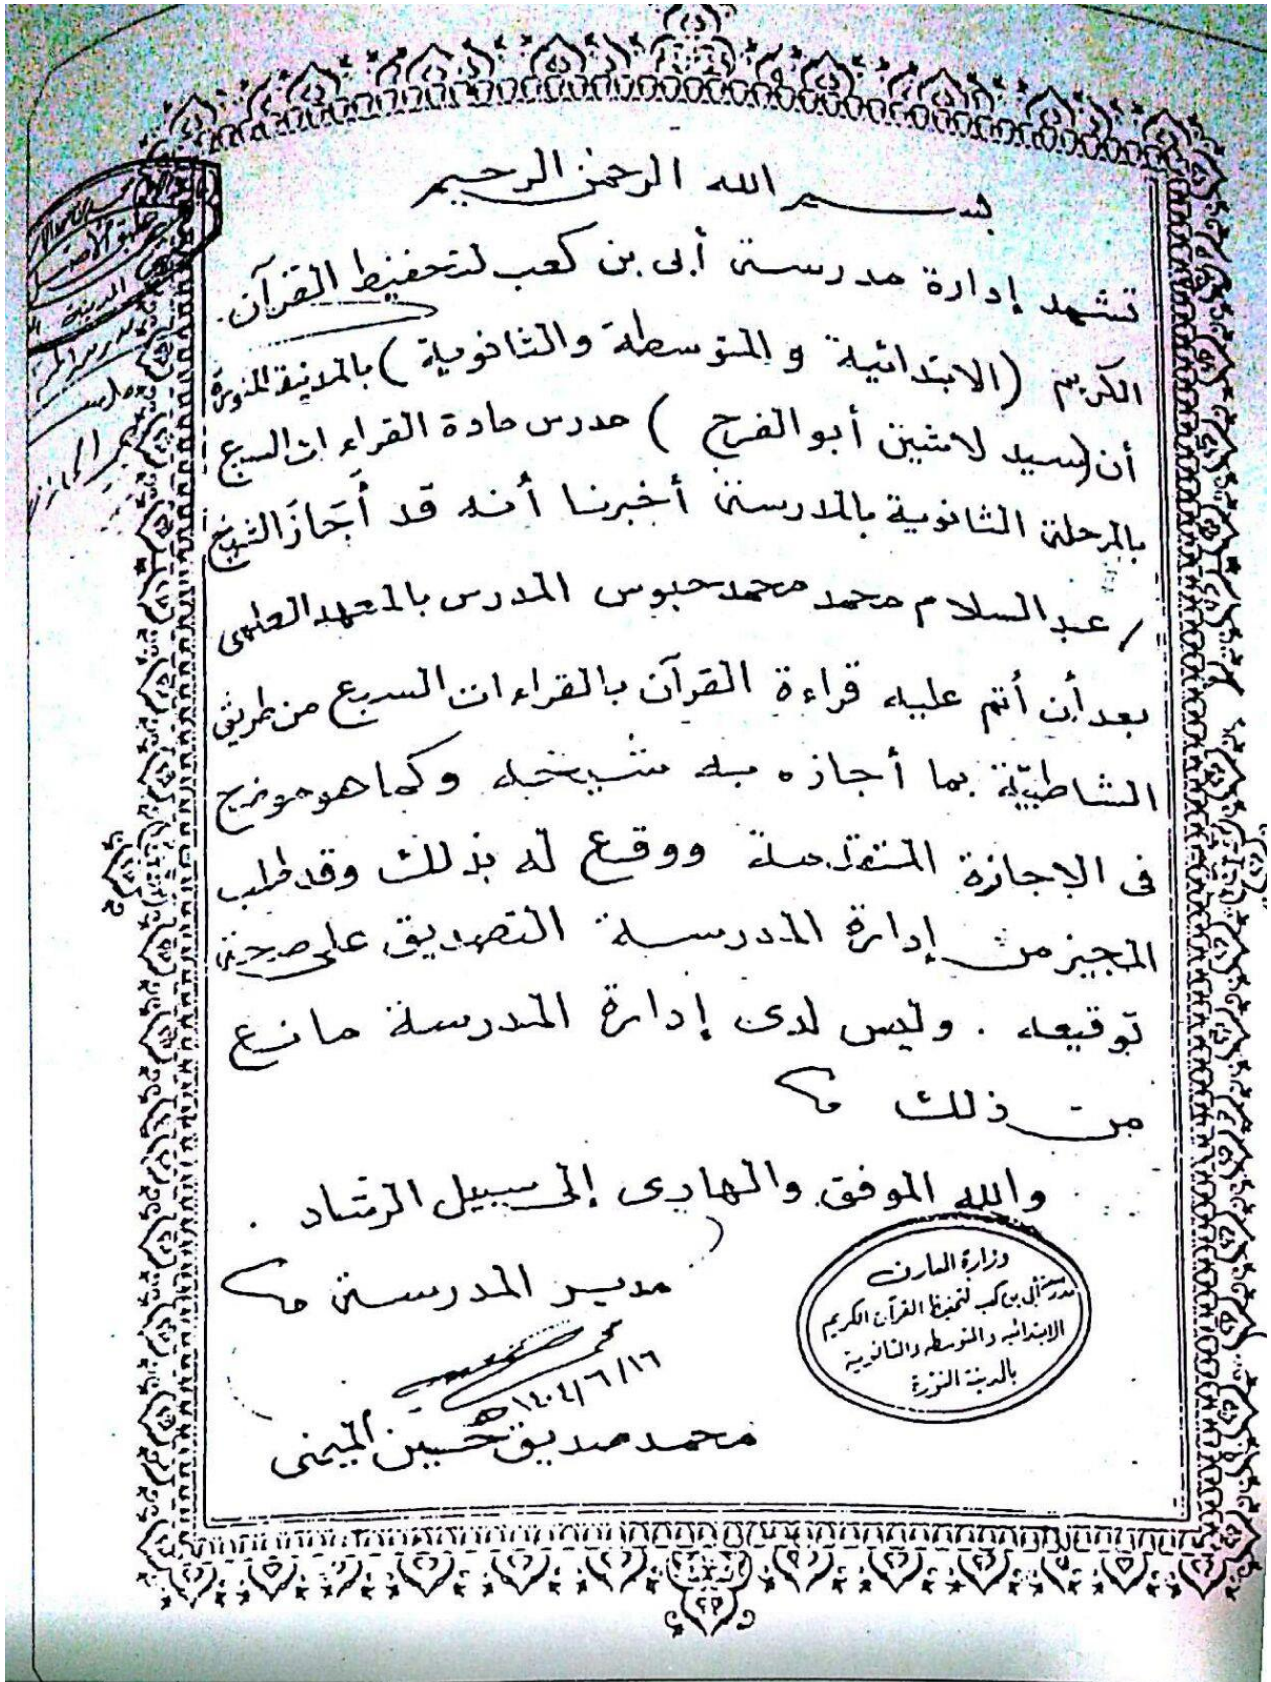 بسم الله الرحمن الرحيم
تشهد إدارة مدرسة أبى بن كعب لتحفيظ القرآن
الكريم (الابتدائية والمتوسطة والثانوية) بالمدينة المنورة
أن (سيد لاشين أبو الفرح) مدرس مادة القراءات السبع
بالمرحلة الثانوية بالمدرسة أخبرنا أنه قد أَجَازَ الشيخ
/ عبد السلام محمد محمد حبوس المدرس بالمعهد العلمى
بعد أن أتم عليه قراءة القرآن بالقراءات السبع من طريق
الشاطبيّة بما أجازه به شيخه وكما هو موضح
فى الإجازة المتقدمة ووقع له بذلك وقد طلب
المجيز من إدارة المدرسة التصديق على صحة
توقيعه . وليس لدى إدارة المدرسة مانع
من ذلك
والله الموفق والهادى إلى سبيل الرشاد .
مدير المدرسة
١٤٠٤/٦/١٦هـ
محمد صديق حسين الميمنى
وزارة المعارف
مدرسة أبى بن كعب لتحفيظ القرآن الكريم
الابتدائيه والمتوسطه والثانوية
بالمدينة المنورة